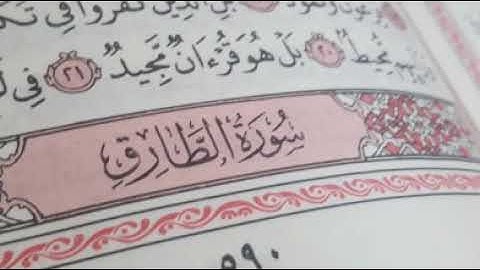 بَلِ ٱلَّذِينَ كَفَرُوا۟ فِى
مُّحِيطٌۢ ٢٠ بَلْ هُوَ قُرْءَانٌ مَّجِيدٌ ٢١ فِى
سُورَةُ الطَّارِقِ
٥٩٠